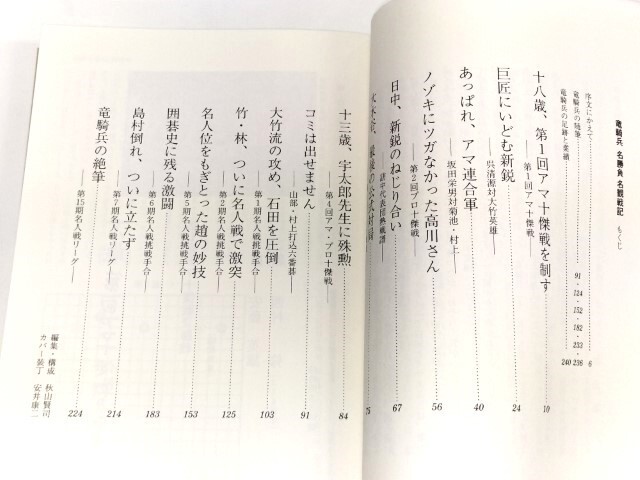 竜騎兵 名勝負 名観戦記 もくじ
序文にかえて 6
竜騎兵の随筆 91・124・152・182・233・236
竜騎兵の足跡と業績 240
十八歳、第1回アマ十傑戦を制す
——第1回アマ十傑戦—— 10
巨匠にいどむ新鋭
——呉清源対大竹英雄—— 24
あっぱれ、アマ連合軍
——坂田栄男対菊池・村上—— 40
ノゾキにツガなかった高川さん
——第2回プロ十傑戦—— 56
日中、新鋭のねじり合い
——訪中代表団熱戦譜—— 67
75
十三歳、宇太郎先生に殊勲
——第4回アマ・プロ十傑戦—— 84
コミは出せません
——山部・村上打込六番碁—— 91
大竹流の攻め、石田を圧倒
——第1期名人戦挑戦手合—— 103
竹・林、ついに名人戦で激突
——第2期名人戦挑戦手合—— 125
名人位をもぎとった趙の妙技
——第5期名人戦挑戦手合—— 153
囲碁史に残る激闘
——第6期名人戦挑戦手合—— 183
島村倒れ、ついに立たず
——第7期名人戦リーグ—— 214
竜騎兵の絶筆
——第15期名人戦リーグ—— 224
編集・構成 秋山賢司
カバー装丁 安井康二